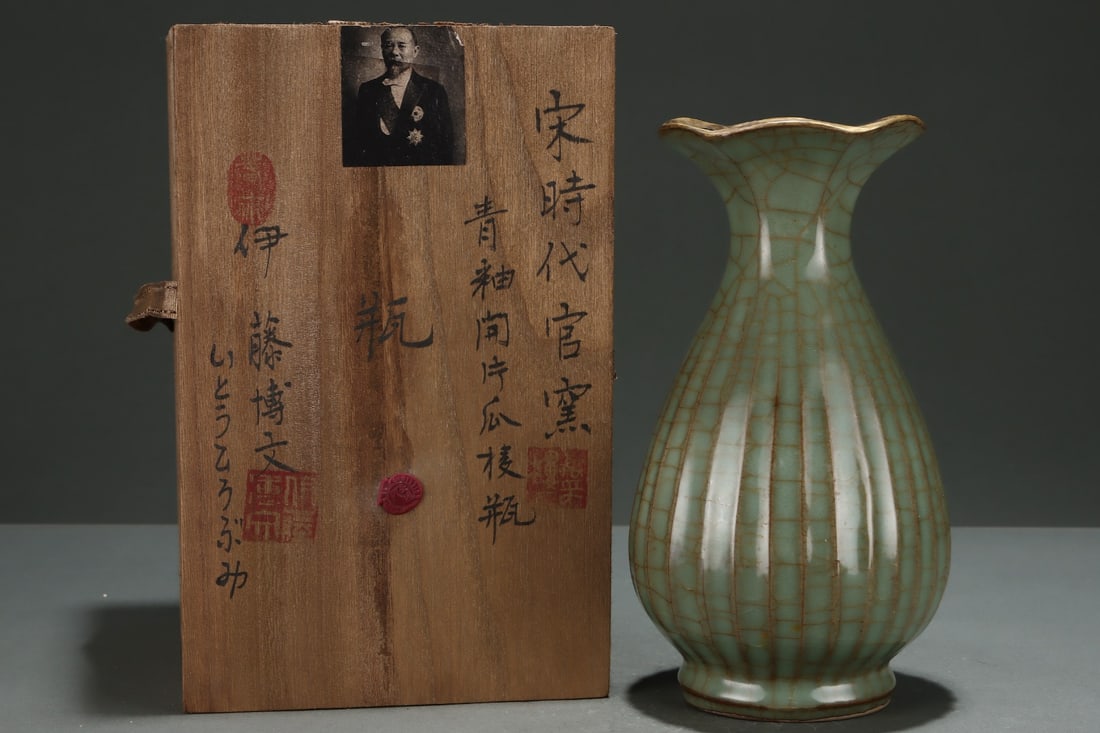 宋時代官窯
青釉開片瓜棱瓶
瓶
伊藤博文
いとうひろぶみ